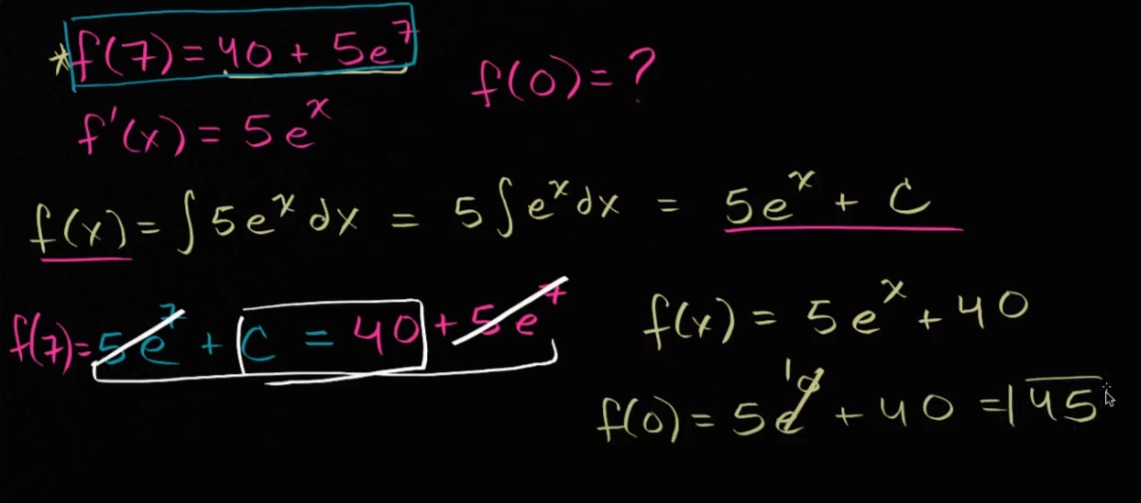 *f(7) = 40 + 5e⁷
f(0) = ?
f'(x) = 5eˣ
f(x) = ∫5eˣ dx = 5∫eˣ dx = 5eˣ + C
f(7) = 5e⁷ + C = 40 + 5e⁷
f(x) = 5eˣ + 40
f(0) = 5e⁰ 1 + 40 = 45